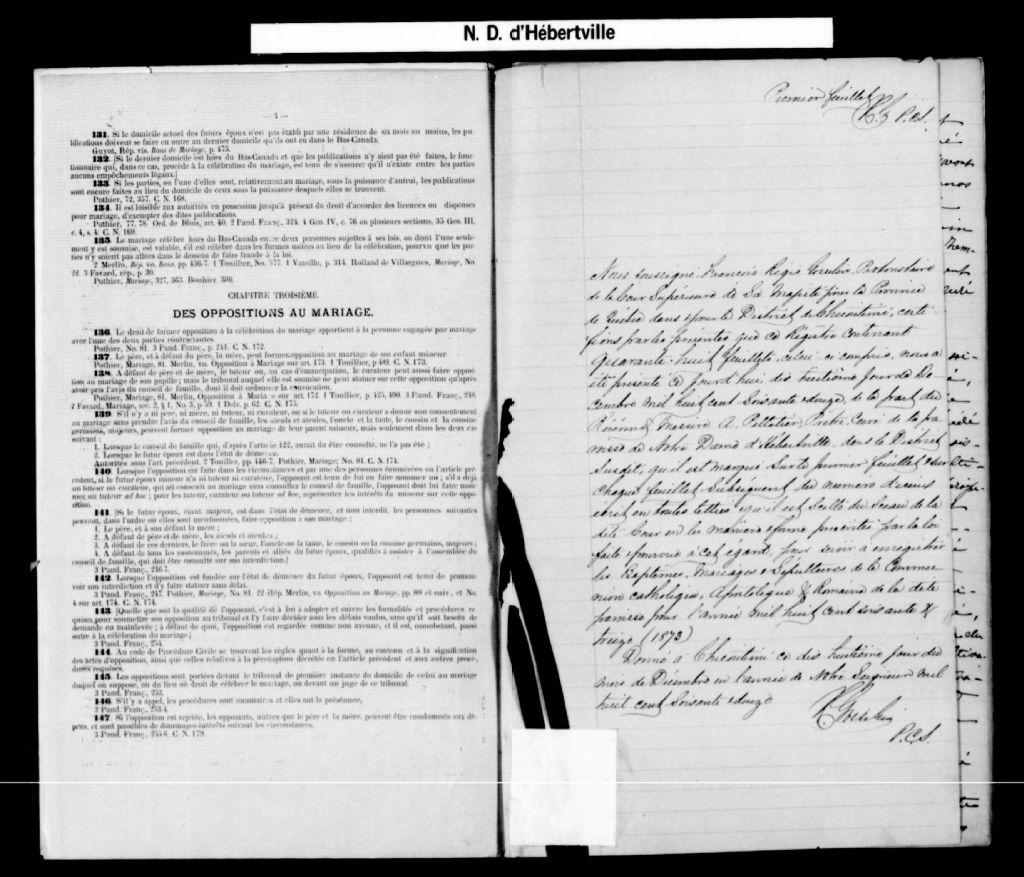 N. D. d'Hébertville
— 4 —
131. Si le domicile actuel des futurs époux n'est pas établi par une résidence de six mois au moins, les publications doivent se faire en outre au dernier domicile qu'ils ont eu dans le Bas-Canada.
Guyot, Rép. vis. Bans de Mariage, p. 475.
132. [Si le dernier domicile est hors du Bas-Canada et que les publications n'y aient pas été faites, le fonctionnaire qui, dans ce cas, procède à la célébration du mariage, est tenu de s'assurer qu'il n'existe entre les parties aucuns empêchements légaux.]
133. Si les parties, ou l'une d'elles, sont, relativement au mariage, sous la puissance d'autrui, les publications sont encore faites au lieu du domicile de ceux sous la puissance desquels elles se trouvent.
Pothier, 72, 357. C. N. 168.
134. Il est loisible aux autorités en possession jusqu'à présent du droit d'accorder des licences ou dispenses pour mariage, d'exempter des dites publications.
Pothier, 77, 78. Ord. de Blois, art. 40. 2 Pand. Franç., 324. 4 Geo. IV, c. 76 en plusieurs sections, 35 Geo. III, c. 4, s. 4. C. N. 169.
135. Le mariage célébré hors du Bas-Canada entre deux personnes sujettes à ses lois, ou dont l'une seulement y est soumise, est valable, s'il est célébré dans les formes usitées au lieu de la célébration, pourvu que les parties n'y soient pas allées dans le dessein de faire fraude à la loi.
2 Merlin, Rép. vo. Bans, pp. 436-7. 1 Toullier, No. 577. 1 Vazeille, p. 314. Rolland de Villargues, Mariage, No. 2f. 3 Favard, rép., p. 30.
Pothier, Mariage, 327, 363. Bouhier. 300.
CHAPITRE TROISIÈME.
DES OPPOSITIONS AU MARIAGE.
136. Le droit de former opposition à la célébration du mariage appartient à la personne engagée par mariage avec l'une des deux parties contractantes.
Pothier, No. 81. 3 Pand. Franç., p. 241. C. N. 172.
137. Le père, et à défaut du père, la mère, peut former opposition au mariage de son enfant mineur.
Pothier, Mariage, 81. Merlin, vo. Opposition à Mariage sur art. 173. 1 Toullier, p 489. C. N. 173.
138. A défaut de père et de mère, le tuteur ou, au cas d'émancipation, le curateur peut aussi faire opposition au mariage de son pupille; mais le tribunal auquel elle est soumise ne peut statuer sur cette opposition qu'après avoir pris l'avis du conseil de famille, dont il doit ordonner la convocation.
Pothier, Mariage, 81. Merlin, Opposition à Mariage sur art. 172. 1 Toullier, p. 425, 490. 3 Pand. Franç., 248. 2 Favard, Mariage, sec. 2, § 1, No. 3, p 59. 1 Delv. p. 62. C. N. 175.
139. S'il n'y a ni père, ni mère, ni tuteur, ni curateur, ou si le tuteur ou curateur a donné son consentement au mariage sans prendre l'avis du conseil de famille, les aïeuls et aïeules, l'oncle et la tante, le cousin et la cousine germains, majeurs, peuvent former opposition au mariage de leur parent mineur, mais seulement dans les deux cas suivant :
1. Lorsque le conseil de famille qui, d'après l'article 122, aurait du être consulté, ne l'a pas été ;
2. Lorsque le futur époux est dans l'état de démence.
Autorités sous l'art. précédent. 2 Toullier, pp. 446-7. Pothier, Mariage; No. 81. C. N. 174.
140. Lorsque l'opposition est faite dans les circonstances et par une des personnes énumérées en l'article précédent, si le futur époux mineur n'a ni tuteur ni curateur, l'opposant est tenu de lui en faire nommer un ; s'il a déjà un tuteur ou curateur, qui ait consenti au mariage sans consulter le conseil de famille, l'opposant doit lui faire nommer un tuteur ad hoc ; pour les tuteur, curateur ou tuteur ad hoc, représenter les intérêts du mineur sur cette opposition.
141. [Si le futur époux, étant majeur, est dans l'état de démence, et non interdit, les personnes suivantes peuvent, dans l'ordre où elles sont mentionnées, faire opposition à son mariage ;
1. Le père, et à son défaut la mère ;
2. A défaut de père et de mère, les aïeuls et aïeules ;
3. A défaut de ces derniers, le frère ou la sœur, l'oncle ou la tante, le cousin ou la cousine germains, majeurs ;
4. A défaut de tous les susnommés, les parents et alliés du futur époux, qualifiés à assister à l'assemblée du conseil de famille, qui doit être consulté sur son interdiction.]
3 Pand. Franç., 246-7.
142. Lorsque l'opposition est fondée sur l'état de démence du futur époux, l'opposant est tenu de promouvoir son interdiction et d'y faire statuer sans délai.
3 Pand. Franç., 247. Pothier, Mariage, No. 81. 22 Rép. Merlin, vo. Opposition au Mariage, pp. 88 et suiv., et No. 4 sur art. 174. C. N. 174.
143. [Quelle que soit la qualité de l'opposant, c'est à lui à adopter et suivre les formalités et procédures requises pour soumettre son opposition au tribunal et l'y faire décider sous les délais voulus, sans qu'il soit besoin de demande en mainlevée ; à défaut de quoi, l'opposition est regardée comme non avenue, et il est, nonobstant, passé outre à la célébration du mariage.]
3 Pand. Franç., 254.
144. Au code de Procédure Civile se trouvent les règles quant à la forme, au contenu et à la signification des actes d'opposition, ainsi que celles relatives à la péremption décrétée en l'article précédent et aux autres procédures requises.
145. Les oppositions sont portées devant le tribunal de première instance du domicile de celui au mariage duquel on suppose, ou du lieu où droit de célébrer le mariage, ou devant un juge de ce tribunal.
3 Pand. Franç., 253.
146. S'il y a appel, les procédures sont sommaires et elles ont la préséance.
3 Pand. Franç., 253-4.
147. Si l'opposition est rejetée, les opposants, autres que le père et la mère, peuvent être condamnés aux dépens, et sont passibles de dommages-intérêts suivant les circonstances.
3 Pand. Franç., 255-6. C. N. 179.
Premier feuillet
P.C.S.
Nous soussigné François Régis Gosselin Protonotaire
de la Cour Supérieure de Sa Majesté pour la Province
de Québec dans & pour le District de Chicoutimi, certi-
fions par les présentes que ce Régistre contenant
Quarante-huit feuillets celui-ci compris, nous a
été présenté ce jourd'hui dix huitième jour de Dé-
cembre mil huit cent soixante & douze, de la part du
Révérend Messire A. Pelletier, Prêtre Curé de la pa-
roisse de Notre Dame d'Hébertville, dans le District
Susdit, qu'il est marqué sur le premier feuillet & sur
chaque feuillet subséquent du numero d'iceux
écrit en toutes lettres & qu'il est scellé du Sceau de la
dite Cour en la manière & forme prescrites par la loi
faite & pourvue à cet égard, pour servir à enregistrer
les Baptêmes, Mariages & Sépultures de la Commu-
nion catholique, Apostolique & Romaine de la dite
paroisse pour l'année mil huit cent soixante &
treize (1873)
Donné à Chicoutimi ce dix huitième jour du
mois de Décembre en l'année de Notre Seigneur mil
huit cent soixante & douze
Gosselin
P.C.S.